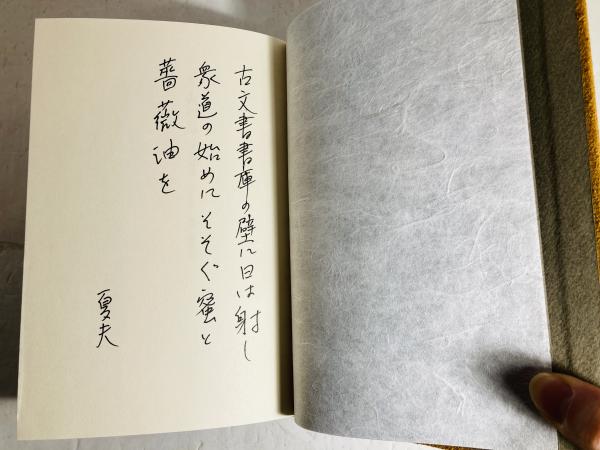 古文書書庫の壁に日は射し
衆道の始めにそそぐ蜜と
薔薇油を
夏夫